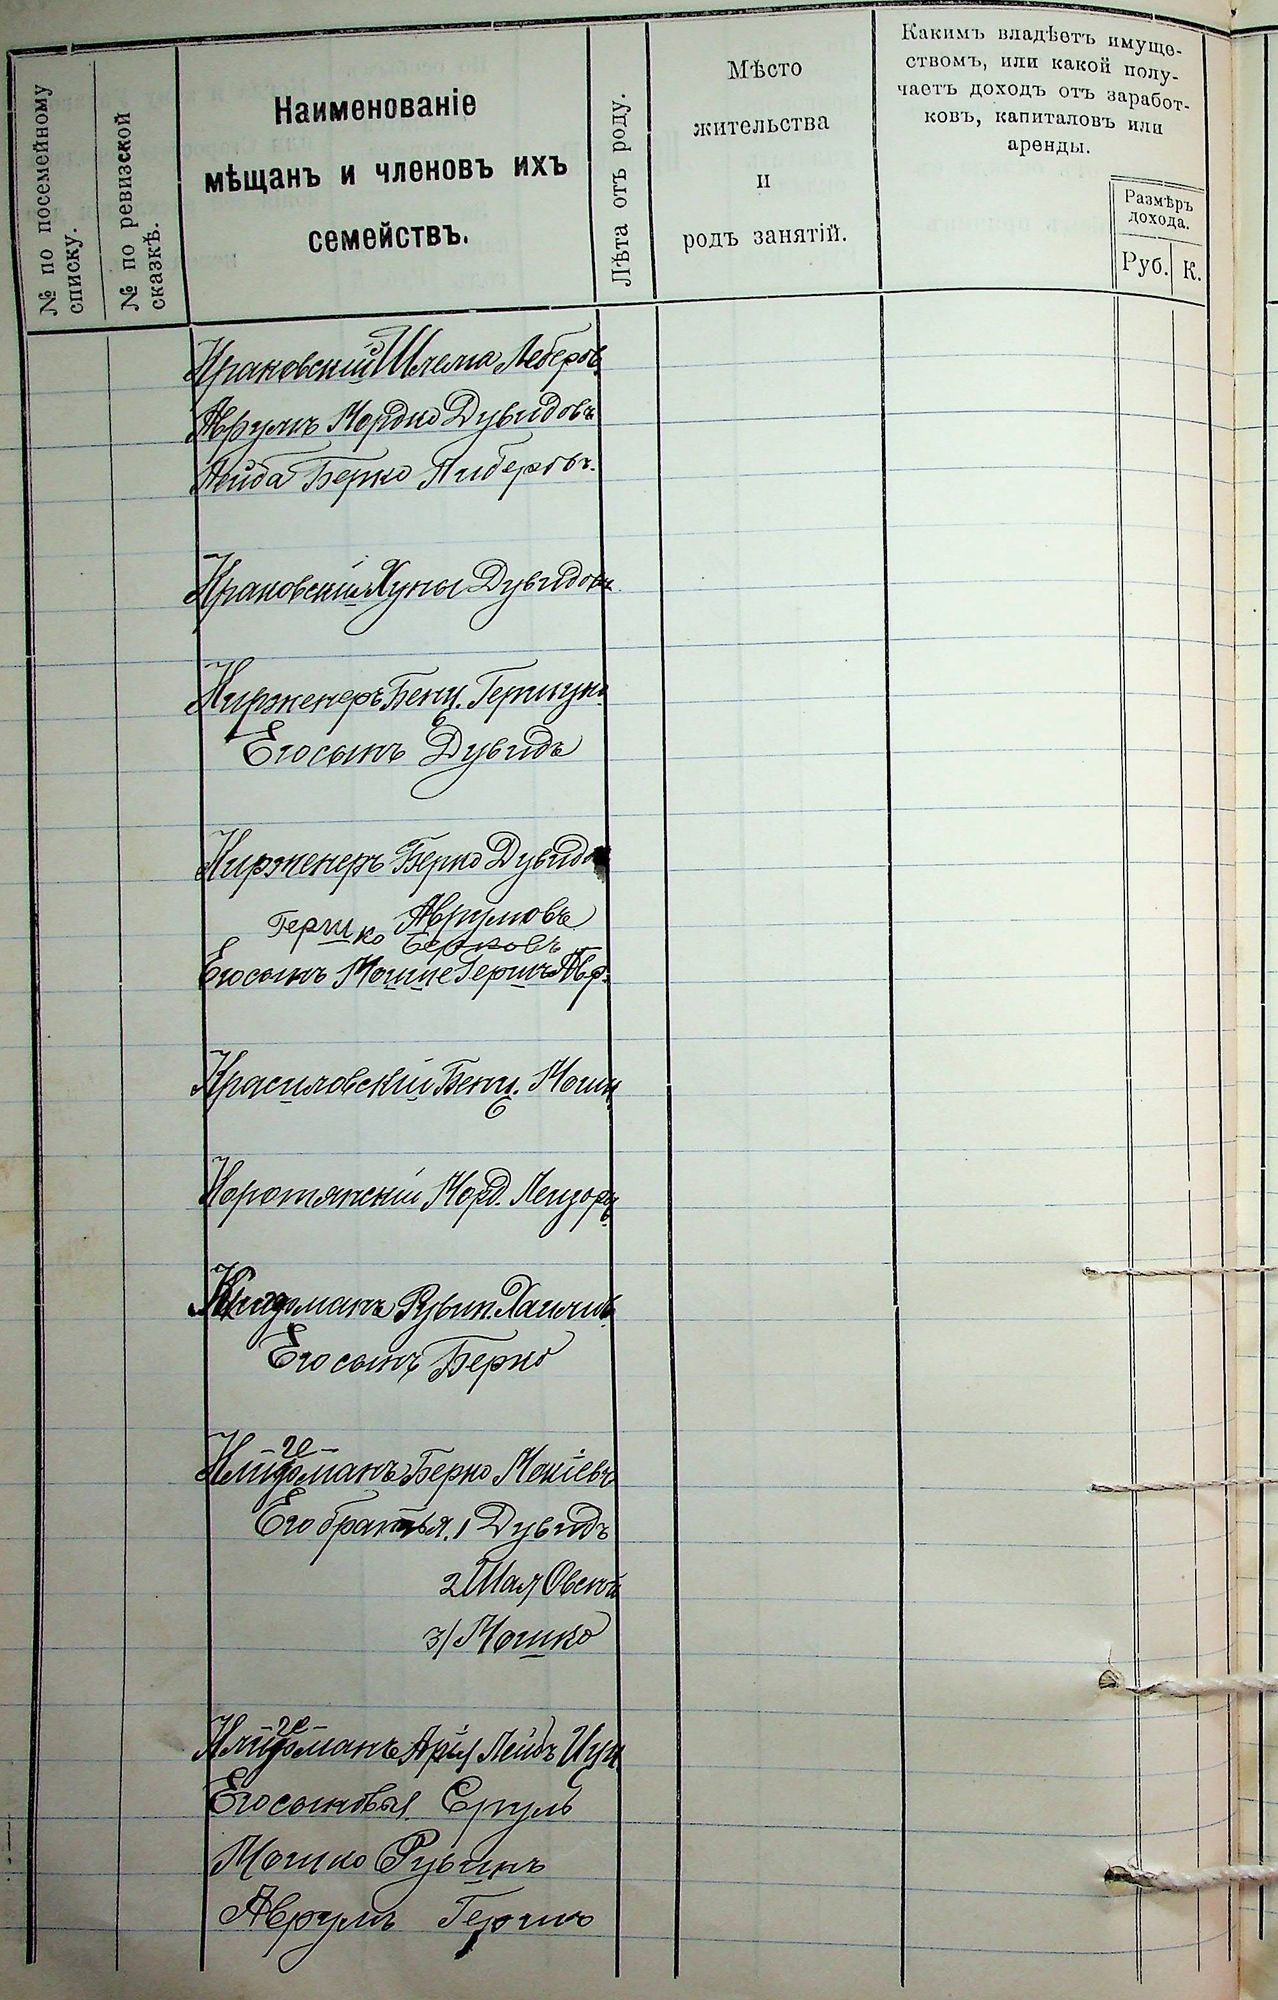 № по посемейному
списку.
№ по ревизской
сказкѣ.
Наименованіе
мѣщанъ и членовъ ихъ
семействъ.
Лѣта отъ роду.
Мѣсто
жительства
и
родъ занятій.
Какимъ владѣетъ имуще-
ствомъ, или какой полу-
чаетъ доходъ отъ заработ-
ковъ, капиталовъ или
аренды.
Размѣръ
дохода.
Руб. К.
Крановскій Шлема Леберов
Аврумъ Мордко Дувидовъ
Лейба Берко Либеровъ.
Крановскій Хуны Дувидовъ
Кирженеръ Бенц. Гершков
Его сынъ Дувидъ
Кирженеръ Берко Дувидов
Гершко Аврумовъ
Берковъ
Его сынъ Мошше Гершъ Авр.
Красиловскій Бенц. Мошк
Коротянскій Морд. Лейзоръ
Рувин. Хаимов
Его сынъ Берко
Берко Мокіевъ
Его братья. 1 Дувидъ
2 Шая Овсей
3/ Мошко
Арія Лейбъ Ицк
Его сыновья Сруль
Мошко Рувинъ
Аврумъ Гершко